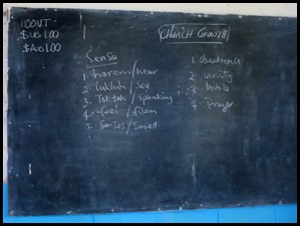 100VT
$US 100
$AUS 100
Sense
1. harem / hear
2. lukluk / see
3. Toktok / Speaking
4. feel / filem
5. Senses / Smell
CHURCH GROWTH
1. Obedience
2. Unity
3. Bible
4. Prayer